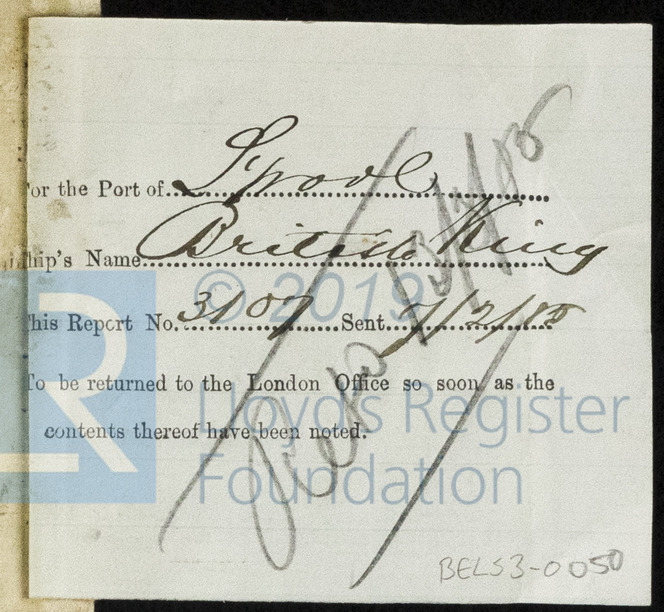 For the Port of L'pool
Ship's Name British King
This Report No. 3107 Sent 7/2/85
To be returned to the London Office so soon as the
contents thereof have been noted.
© 2019
Lloyd's Register
Foundation
LR
BELS3-0050